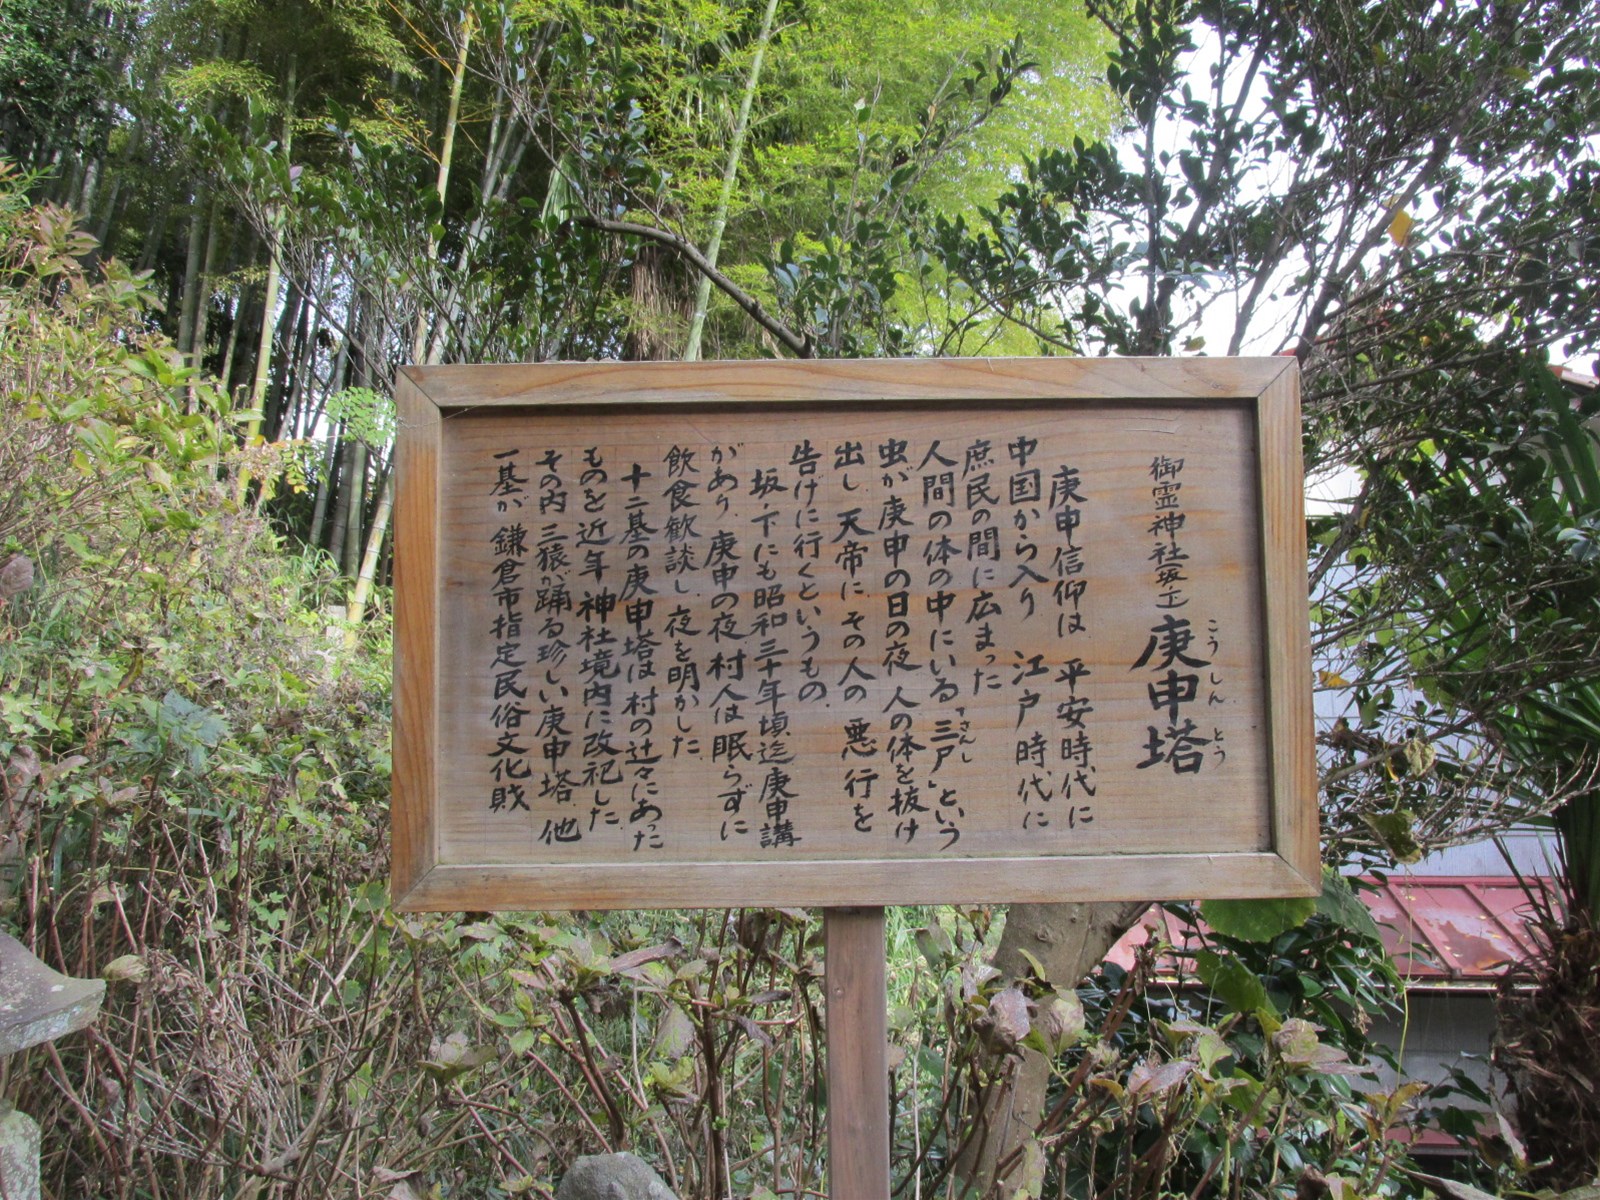 御霊神社(坂ノ下) 庚申塔
こうしん とう
庚申信仰は 平安時代に
中国から入り 江戸時代に
庶民の間に広まった
人間の体の中にいる「三尸」という
さんし
虫が庚申の日の夜 人の体を抜け
出し、天帝に、その人の 悪行を
告げに行くというもの。
坂ノ下にも昭和三十年頃迄庚申講
があり、庚申の夜 村人は眠らずに
飲食歓談し 夜を明かした。
十二基の庚申塔は村の辻々にあった
ものを近年 神社境内に改祀した。
その内 三猿が踊る珍しい庚申塔、他
一基が 鎌倉市指定民俗文化財